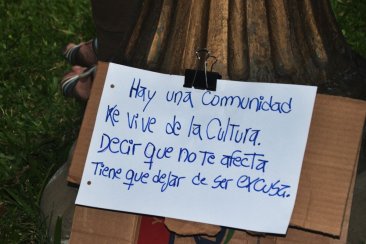 Hay una comunidad
Ke vive de la Cultura.
Decir que no te afecta
Tiene que dejar de ser excusa.